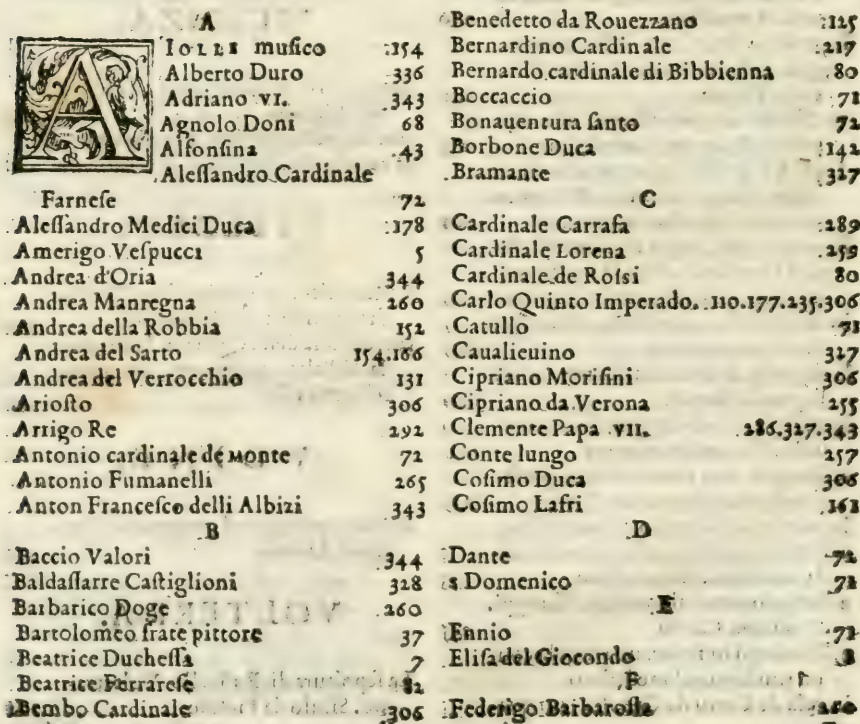 A
AIOLLE musico 154
Alberto Duro 336
Adriano VI. 343
Agnolo Doni 68
Alfonsina 43
Alessandro Cardinale
Farnese 72
Alessandro Medici Duca 178
Amerigo Vespucci 5
Andrea d'Oria 344
Andrea Manregna 260
Andrea della Robbia 152
Andrea del Sarto 154.166
Andrea del Verrocchio 131
Ariosto 306
Arrigo Re 292
Antonio cardinale de Monte 72
Antonio Fumanelli 265
Anton Francesco delli Albizi 343
B
Baccio Valori 344
Baldassarre Castiglioni 328
Barbarico Doge 260
Bartolomeo frate pittore 37
Beatrice Duchessa 7
Beatrice Ferrarese 82
Bembo Cardinale 306
Benedetto da Rouezzano 125
Bernardino Cardinale 217
Bernardo cardinale di Bibbienna 80
Boccaccio 71
Bonauentura santo 72
Borbone Duca 142
Bramante 327
C
Cardinale Carrafa 289
Cardinale Lorena 259
Cardinale de Rossi 80
Carlo Quinto Imperado. 110.177.235.306
Catullo 71
Caualieuino 327
Cipriano Morisini 306
Cipriano da Verona 255
Clemente Papa VII. 286.327.343
Conte lungo 257
Cosimo Duca 306
Cosimo Lafri 161
D
Dante 72
s Domenico 72
E
Ennio 72
Elisa del Giocondo 8
F
Federigo Barbarossa 260